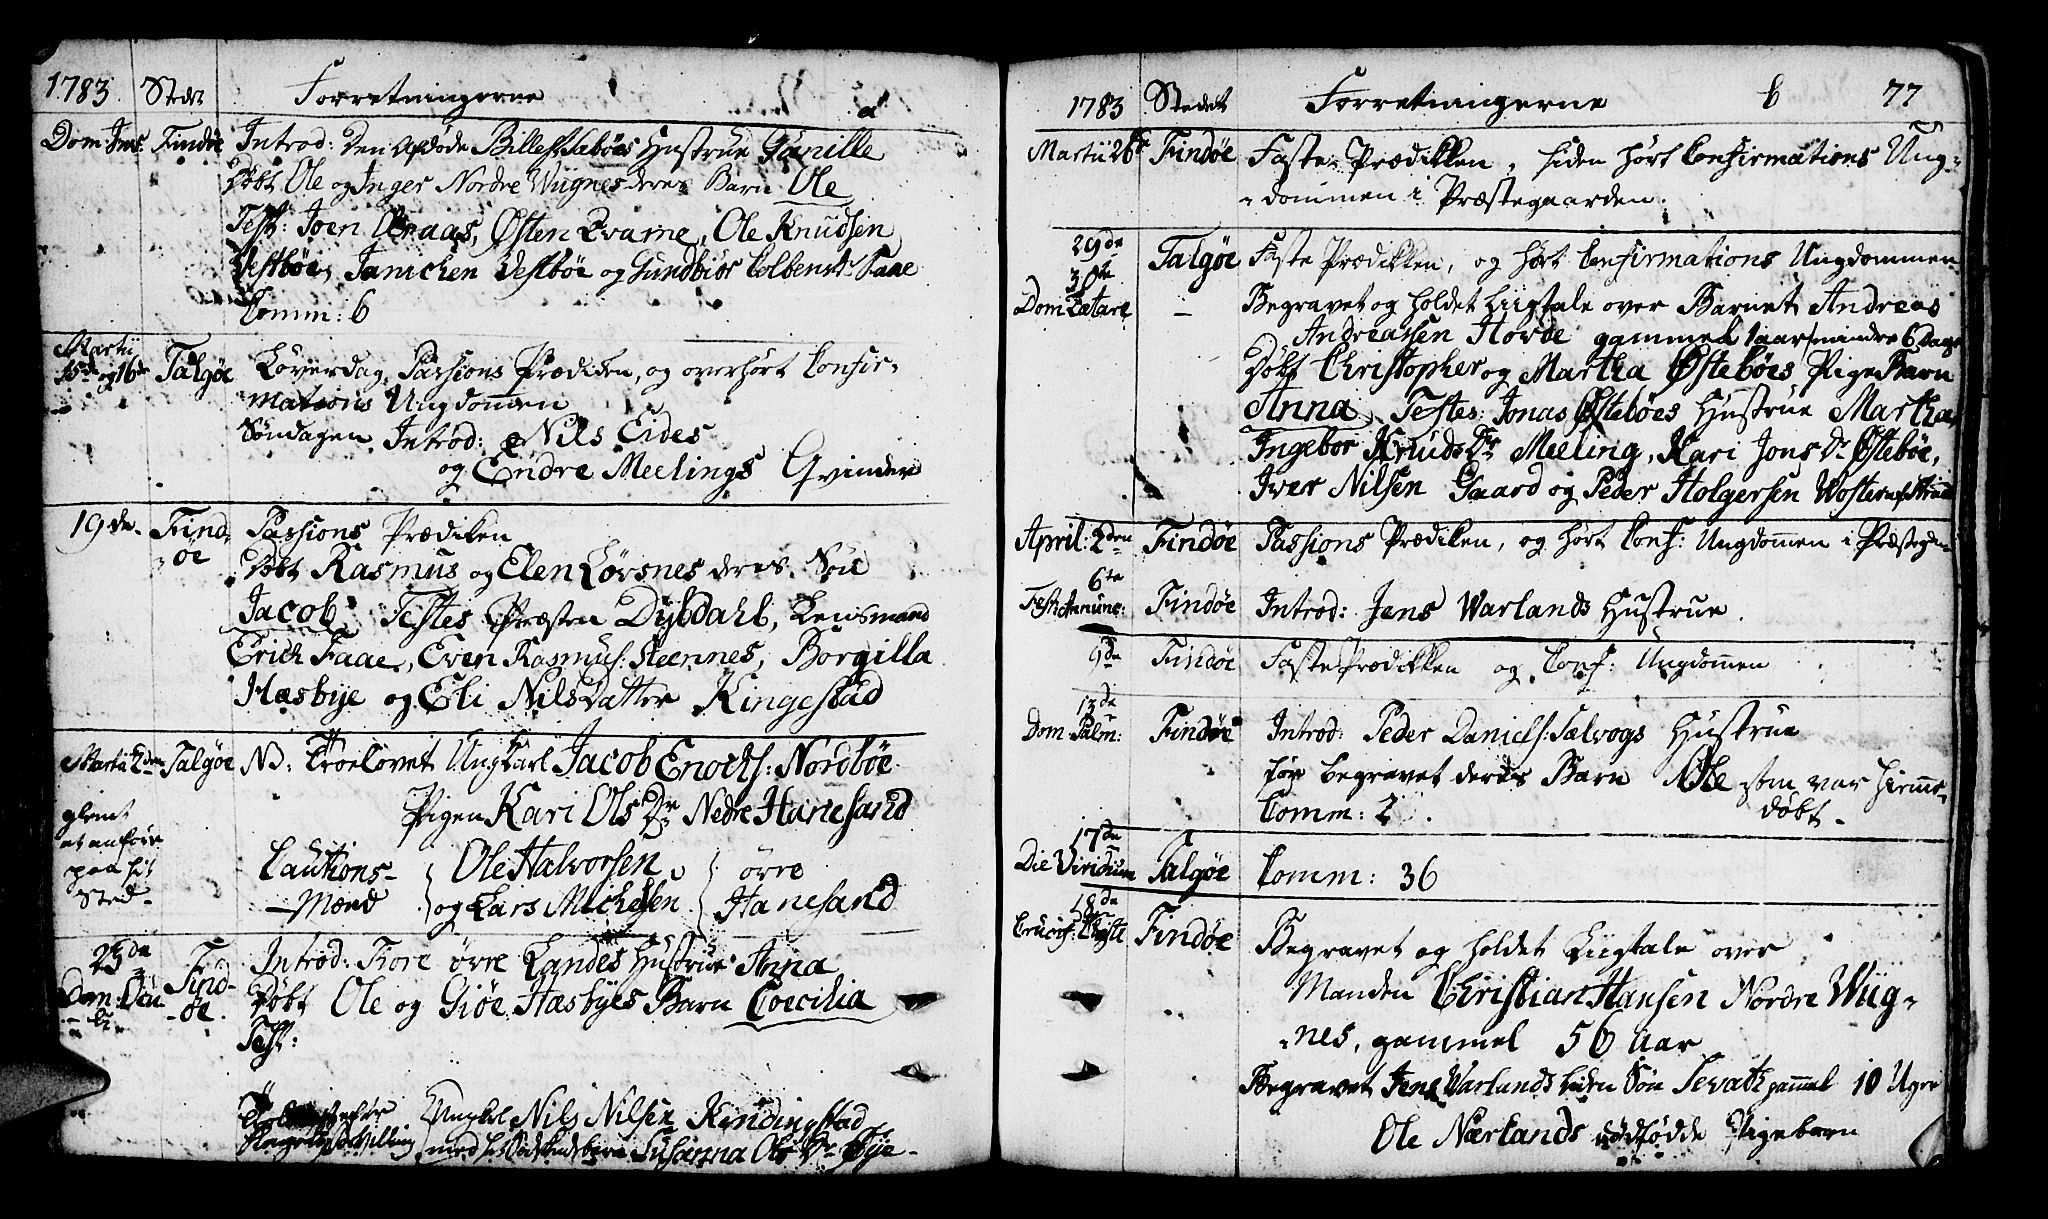 1783. Stedet Forretningerne a
Dom: Inv: Findøe Introd: Den afdøde Bille Sæbøes Hustrue Gunille
Døbt Ole og Inger Nordre Wiignes deres Barn Ole
Test: Joen Aaraas, Østen Qvame, Ole Knudsen
Vestbøe, Janichen Vestbøe og Gundbiør Colbenst: Faae
Comm: 6
Martii 15de og 16de Talgøe Løverdag, Passions Prædiken, og overhørt Confir-
mations Ungdommen
Søndagen Introd: Nils Eides
og Endre Meelings Qvinder
19de. Find- Passions Prædiken
-øe Døbt Rasmus og Elen Lørsnes deres Søn
Jacob Testes Præsten Dybdahl, Lensmand
Erich Faae, Even Rasmus: Steennes, Borgilla
Hæsbye og Eli Nils Datter Kingestad
Martii 2den Talgøe NB: Troelovet Ungkarl Jacob Enochs: Nordbøe
Pigen Kari Ols Dr Nedre Hanesand
glemt
at anføre
paa sit
Sted-
Cautions- Ole Halvorsen øvre
-Mænd og Lars Michelsen Hanesand
23de Find- Introd: Tore øvre Landes Hustrue Anna
Dom: Ocu- -øe. Døbt Ole og Giøe Hasbyes Barn Coecilia
li
Test:
Ungkl Nils Nilsen Kindingstad
med sit Susanna Ols Dr Øje-
1783 Stedet Forretningerne b 77
Martii 26de Findøe Faste-Prædikken, siden hørt Confirmations Ung-
-dommen i Præstegaarden.
29de Talgøe Faste Prædikken, og hørt Confirmations Ungdommen
30te
Dom Lætare - Begravet og holdet Liigtale over Barnet Andreas
Andreassen Hovde gammel 1 aar mindre 6 Dage
Døbt Christopher og Martha Østebøes Pige Barn
Anna, Testes: Jonas Østebøes Hustrue Martha
Ingebor Knuds Dr Meeling, Kari Jons Dr Østebøe,
Iver Nilsen Gaard og Peder Holgersen
April: 2den Findøe Passions Prædiken, og hørt Conf: Ungdommen i Præstega-
6te
Fest: Annunc: Findøe Introd: Jens Warlands Hustrue.
9de Findøe Faste Prædikken og Conf: Ungdommen
13de
Dom Palm: Findøe Introd: Peder Daniels: Sælvogs Hustrue
før begravet deres Barn Nille som var hiemme-
døbt-
Comm: 2.
17de
Die Viridium Talgøe Comm: 36
18de
Crucif: Christi Findøe Begravet og holdet Liigtale over
Manden Christian Hansen Nordre Wiig-
-nes, gammel 56 aar
Begravet Jens Warlands liden Søn Sevath gammel 10 Uger
Ole Nærlands dødfødde Pigebarn